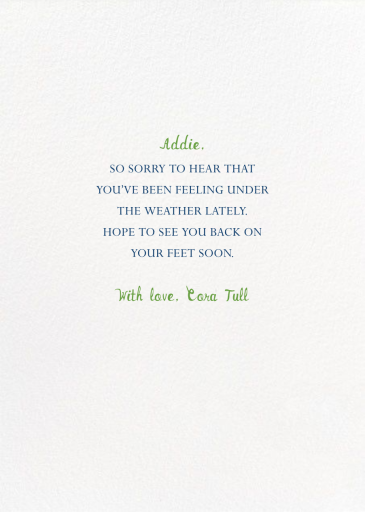 Addie,
SO SORRY TO HEAR THAT
YOU'VE BEEN FEELING UNDER
THE WEATHER LATELY.
HOPE TO SEE YOU BACK ON
YOUR FEET SOON.
With love, Cora Tull